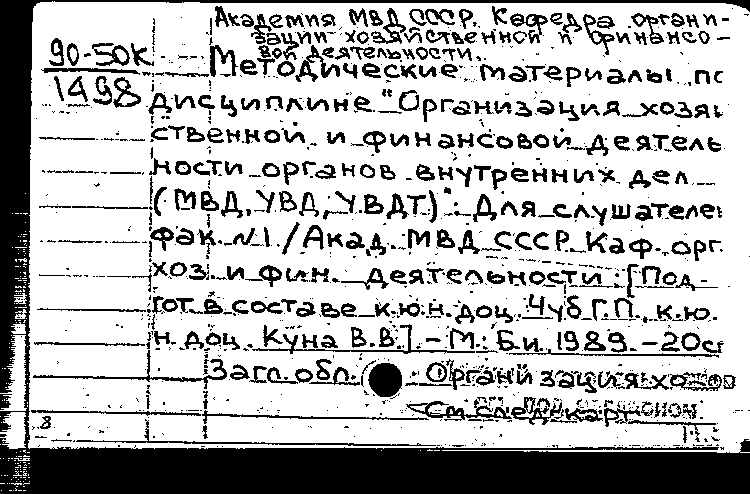 Академия МВД СССР. Кафедра органи-
зации хозяйственной и финансо-
вой деятельности.
90-50К
1498
Методические материалы по
дисциплине "Организация хозяй
ственной и финансовой деятель
ности органов внутренних дел
(МВД, УВД, УВДТ)": Для слушателей
фак. №1 / Акад. МВД СССР. Каф. орг.
хоз. и фин. деятельности; [Под-
гот. в составе к.ю.н. доц. Чуб Г.П., к.ю.
н. доц. Куна В.В.]. - М.: Б.и., 1989. - 20с
Загл. обл. Организация хоз
См. след. карт.
8